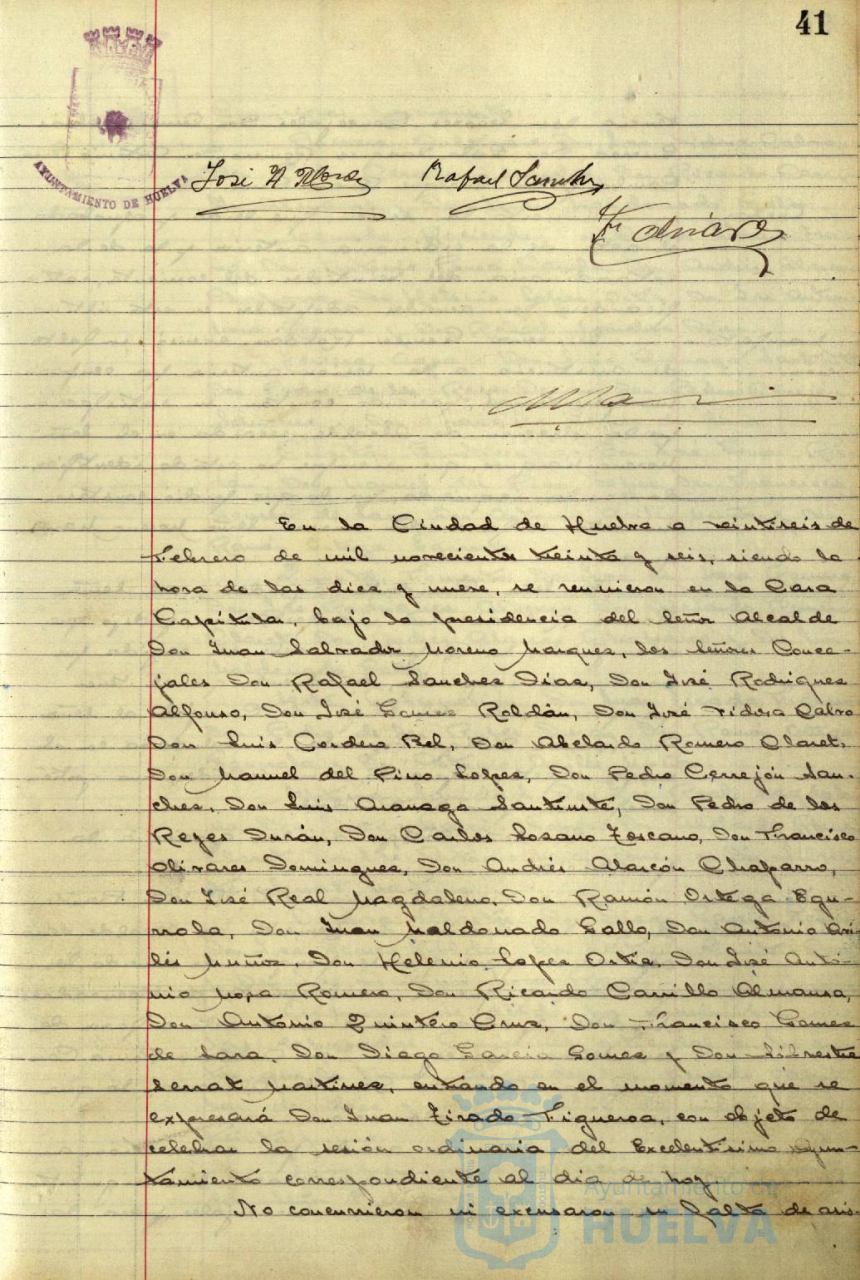 41
AYUNTAMIENTO DE HUELVA
José
Rafael Sanchez
En la Ciudad de Huelva a veintiseis de
Febrero de mil novecientos treinta y seis, siendo la
hora de las diez y nueve, se reunieron en la Casa
Capitular, bajo la presidencia del Señor Alcalde
Don Juan Salvador Moreno Marquez, los Señores Conce-
jales Don Rafael Sanchez Diaz, Don José Rodriguez
Alfonso, Don José Gomez Roldán, Don José Tidora Calvo
Don Luis Cordero Bel, Don Abelardo Romero Claret,
Don Manuel del Pino Lopez, Don Pedro Cerrejón San-
chez, Don Luis Aranaga Santiuste, Don Pedro de los
Reyes Durán, Don Carlos Lozano Toscano, Don Francisco
Olivares Dominguez, Don Andrés Alarcón Chaparro,
Don José Real Magdaleno, Don Ramón Ortega Egu-
rrola, Don Juan Maldonado Gallo, Don Antonio Avi-
lés Muñoz, Don Helenio Lopez Ortiz, Don José Anto-
nio Moya Romero, Don Ricardo Carrillo Almansa,
Don Antonio Quintero Cruz, Don Francisco Gomez
de Lara, Don Diego Garcia Gomez y Don Silvestre
Serrat Martinez, entrando en el momento que se
expresará Don Juan Tirado Figueroa, con objeto de
celebrar la sesión ordinaria del Excelentisimo Ayun-
tamiento correspondiente al dia de hoy
No concurrieron ni excusaron su falta de asis-
Ayuntamiento de
HUELVA